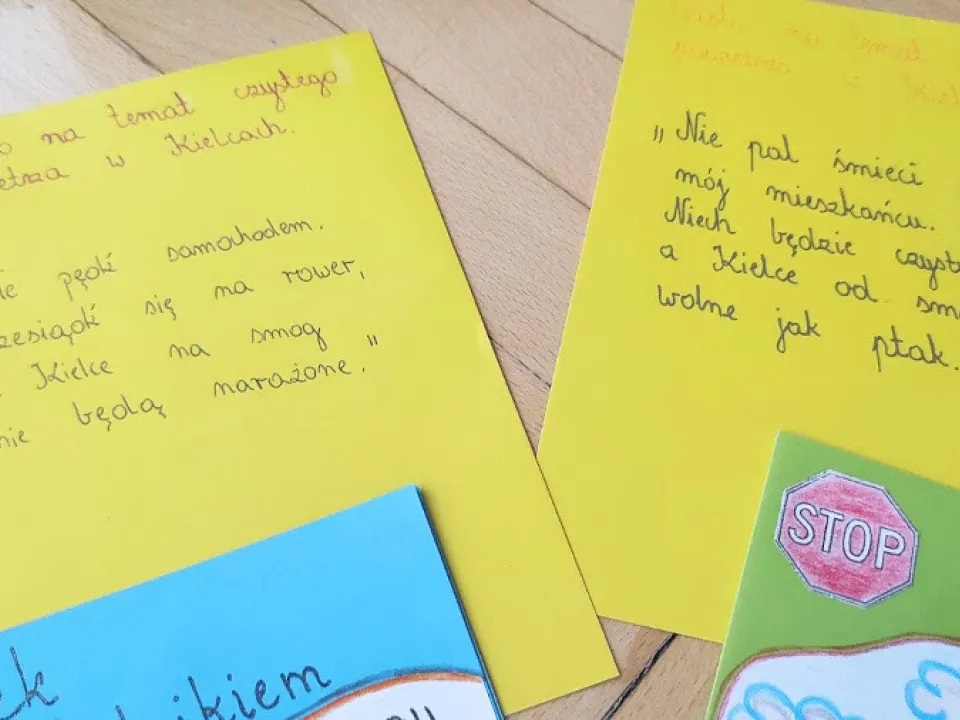 o na temat czystego
etrza w Kielcach.
ie pędź samochodem.
zesiądź się na rower,
Kielce na smog
nie będą narażone.”
„Nie pal śmieci
mój mieszkańcu.
Niech będzie czyst
a Kielce od sm
wolne jak ptak.
STOP
ek
ikiem